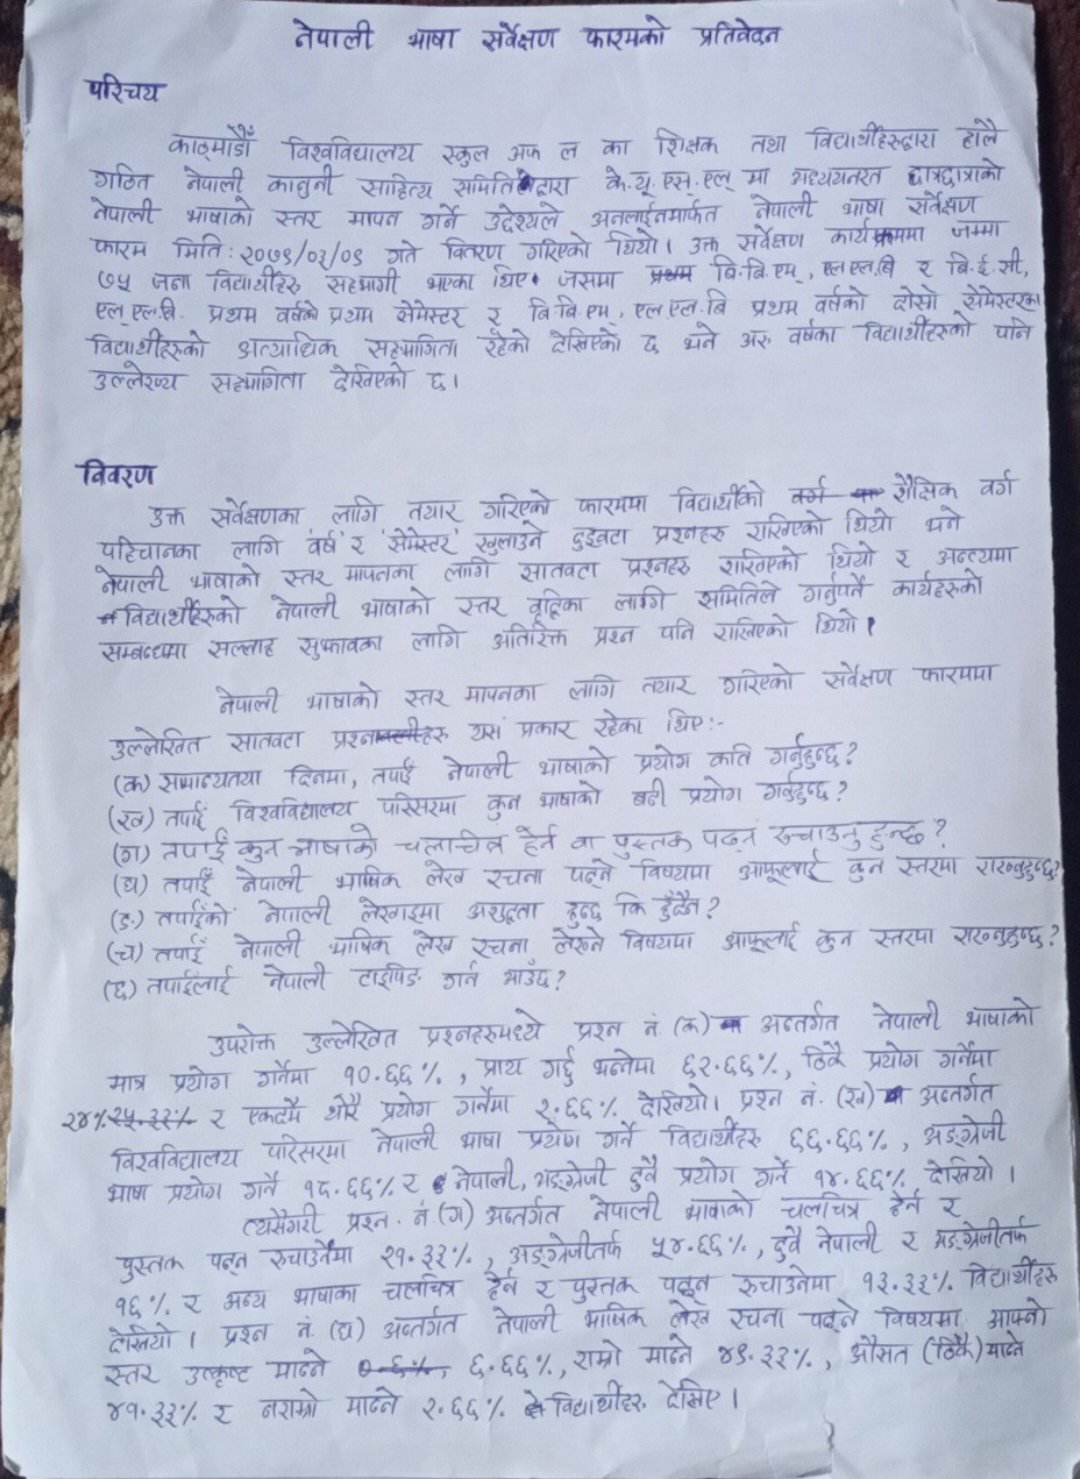 नेपाली भाषा सर्वेक्षण फारमको प्रतिवेदन
परिचय
काठ्माडौँ विश्वविद्यालय स्कुल अफ ल का शिक्षक तथा विद्यार्थीहरुद्वारा हालै
गठित नेपाली कानुनी साहित्य समितिद्वारा के.यू.एस्.एल् मा अध्ययनरत छात्रछात्राको
नेपाली भाषाको स्तर मापन गर्ने उद्देश्यले अनलाईनमार्फत नेपाली भाषा सर्वेक्षण
फारम मिति: २०७९/०३/०९ गते वितरण गरिएको थियो। उक्त सर्वेक्षण कार्यक्रममा जम्मा
७५ जना विद्यार्थीहरु सहभागी भएका थिए। जसमा बि.बि.एम्, एलएल.बि र बि.ई.सी,
एल्.एल.बि. प्रथम वर्षको प्रथम सेमेस्टर र बि.बि.एम, एल.एल.बि प्रथम वर्षको दोस्रो सेमेस्टरका
विद्यार्थीहरुको अत्याधिक सहभागिता रहेको देखिएको छ भने अरु वर्षका विद्यार्थीहरुको पनि
उल्लेख्य सहभागिता देखिएको छ।
विवरण
उक्त सर्वेक्षणका लागि तयार गरिएको फारममा विद्यार्थीको शैक्षिक वर्ग
पहिचानका लागि 'वर्ष' र 'सेमेस्टर' खुलाउने दुइवटा प्रश्नहरु राखिएको थियो भने
नेपाली भाषाको स्तर मापनका लागि सातवटा प्रश्नहरु राखिएको थियो र अन्त्यमा
विद्यार्थीहरुको नेपाली भाषाको स्तर वृद्धिका लागि समितिले गर्नुपर्ने कार्यहरुको
सम्बन्धमा सल्लाह सुझावका लागि अतिरिक्त प्रश्न पनि राखिएको थियो।
नेपाली भाषाको स्तर मापनका लागि तयार गरिएको सर्वेक्षण फारममा
उल्लेखित सातवटा प्रश्नहरु यस प्रकार रहेका थिए:-
(क) सामान्यतया दिनमा, तपाईँ नेपाली भाषाको प्रयोग कति गर्नुहुन्छ?
(ख) तपाईँ विश्वविद्यालय परिसरमा कुन भाषाको बढी प्रयोग गर्नुहुन्छ?
(ग) तपाईँ कुन भाषाको चलचित्र हेर्न वा पुस्तक पढ्न रुचाउनु हुन्छ?
(घ) तपाईँ नेपाली भाषिक लेख रचना पढ्ने विषयमा आफूलाई कुन स्तरमा राख्नुहुन्छ?
(ङ) तपाईँको नेपाली लेखाइमा अशुद्धता हुन्छ कि हुँदैन?
(च) तपाईँ नेपाली भाषिक लेख रचना लेख्ने विषयमा आफूलाई कुन स्तरमा राख्नुहुन्छ?
(छ) तपाईलाई नेपाली टाइपिङ गर्न आउँछ?
उपरोक्त उल्लेखित प्रश्नहरुमध्ये प्रश्न नं (क) अन्तर्गत नेपाली भाषाको
मात्र प्रयोग गर्नेमा १०.६६%, प्राय गर्छु भन्नेमा ६२.६६%, ठिकै प्रयोग गर्नेमा
२४% र एकदमै थोरै प्रयोग गर्नेमा २.६६% देखियो। प्रश्न नं. (ख) अन्तर्गत
विश्वविद्यालय परिसरमा नेपाली भाषा प्रयोग गर्ने विद्यार्थीहरु ६६.६६%, अङ्ग्रेजी
भाषा प्रयोग गर्ने १८.६६% र नेपाली, अङ्ग्रेजी दुवै प्रयोग गर्ने १४.६६% देखियो।
त्यसैगरी प्रश्न. नं.(ग) अन्तर्गत नेपाली भाषाको चलचित्र हेर्न र
पुस्तक पढ्न रुचाउनेमा २१.३३%, अङ्ग्रेजीतर्फ ५४.६६%, दुवै नेपाली र अङ्ग्रेजीतर्फ
१६% र अन्य भाषाका चलचित्र हेर्न र पुस्तक पढ्न रुचाउनेमा १३.३३% विद्यार्थीहरु
देखियो। प्रश्न नं. (घ) अन्तर्गत नेपाली भाषिक लेख रचना पढ्ने विषयमा आफ्नो
स्तर उत्कृष्ट मान्ने ६.६६%, राम्रो मान्ने ४९.३३%, औसत (ठिकै) मान्ने
४१.३३% र नराम्रो मान्ने २.६६% विद्यार्थीहरु देखिए।